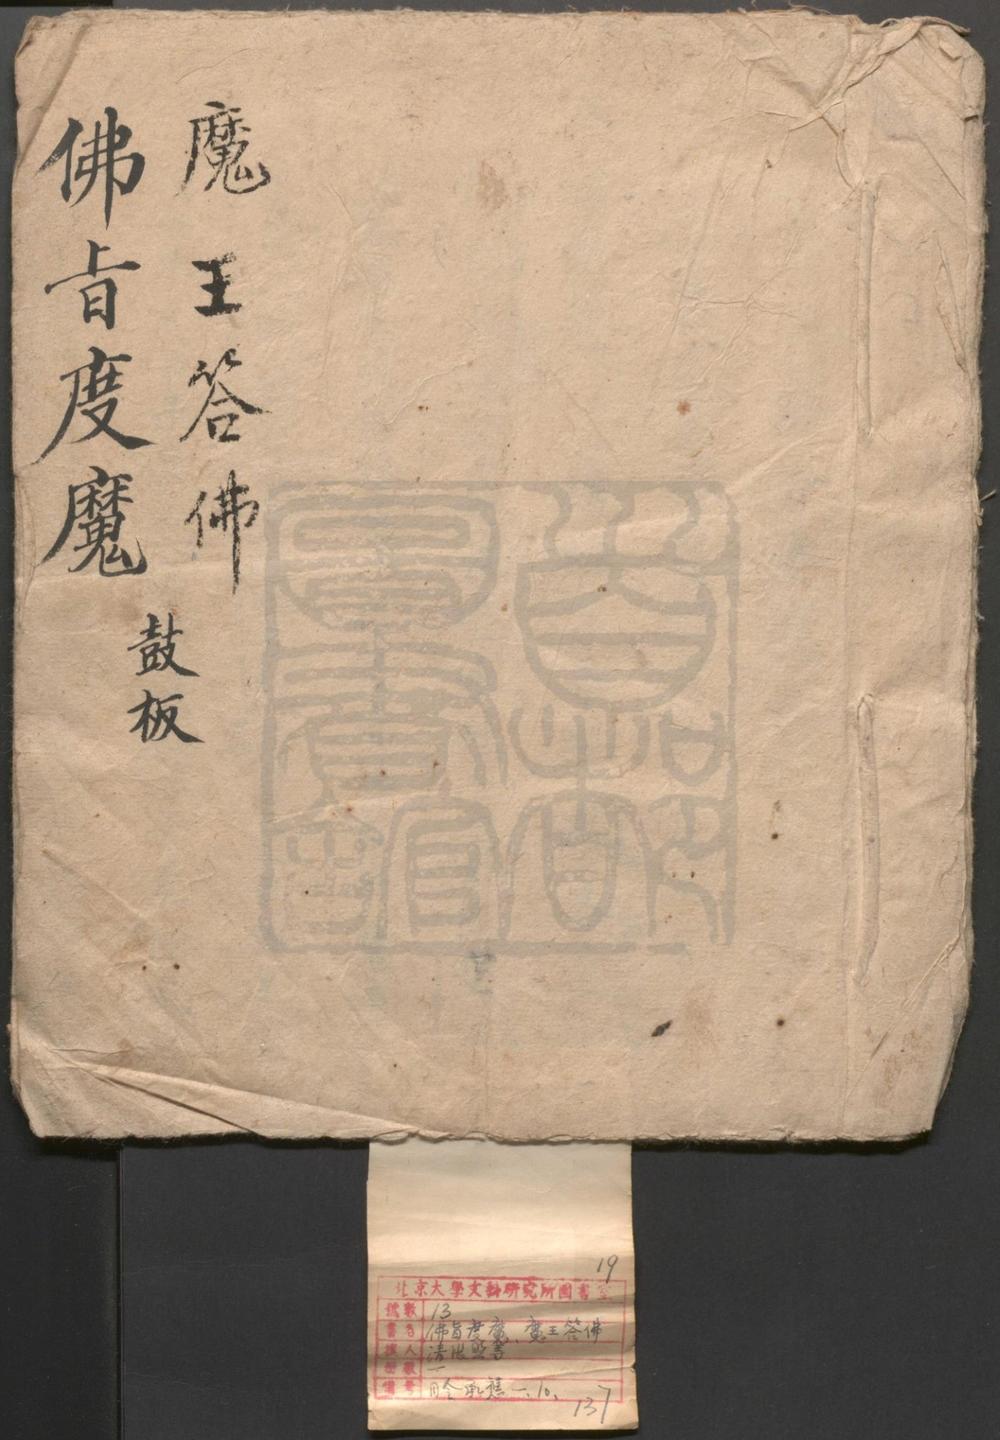 魔王答佛
佛旨度魔
鼓板
19
北京大學文科研究所圖書室
號數 13
書名 佛旨度魔、魔王答佛
撰人 清
冊數 一
備考
137
首都圖書館藏書之印